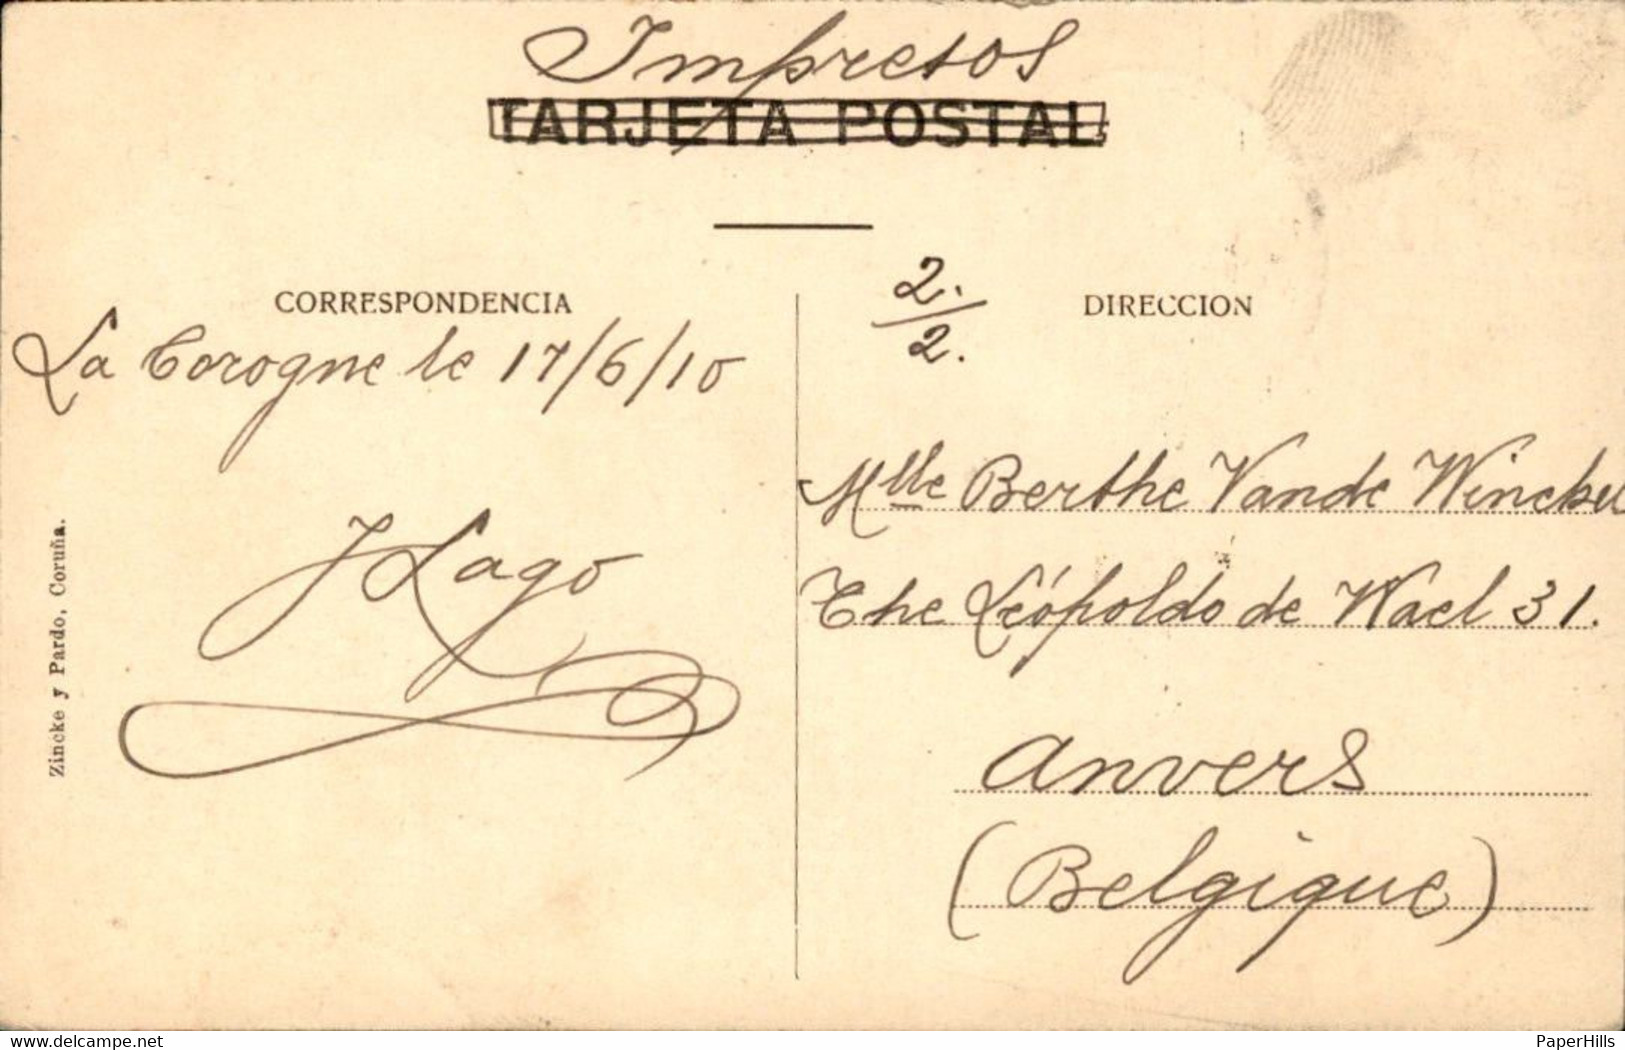 Impresos
TARJETA POSTAL
CORRESPONDENCIA
La Corogne le 17/6/10
JLago
Zincke y Pardo, Coruña.
2.
2.
DIRECCION
Mlle Berthe Vande Winckel
The Léopoldo de Wael 31.
Anvers
(Belgique)
www.delcampe.net
PaperHills